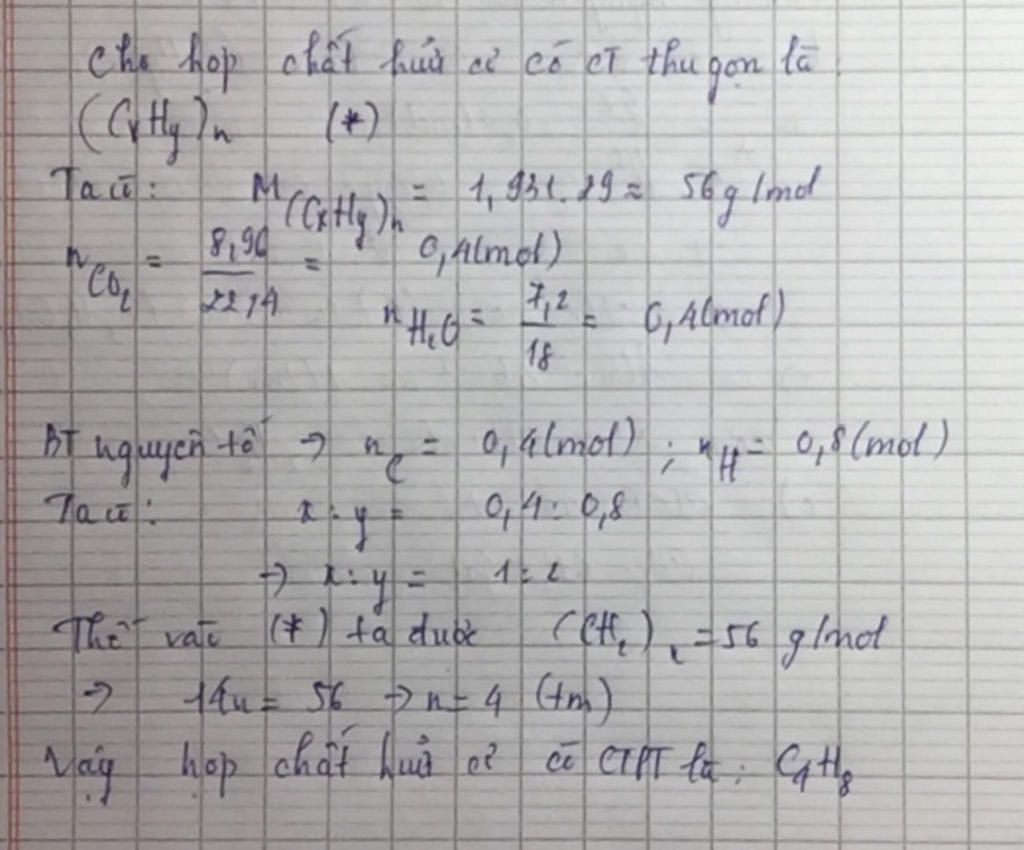 Cho hợp chất hữu cơ có CT thu gọn là
(CxHy)n (*)
Ta có: M(CxHy)n = 1,931.29 ≈ 56g/mol
nCO2 = 8,96/22,4 = 0,4(mol)
nH2O = 7,2/18 = 0,4(mol)
BT nguyên tố → nC = 0,4(mol) ; nH = 0,8(mol)
Ta có: x:y = 0,4:0,8
→ x:y = 1:2
Thế vào (*) ta được (CH2)n = 56 g/mol
→ 14n = 56 → n = 4 (tm)
Vậy hợp chất hữu cơ có CTPT là: C4H8